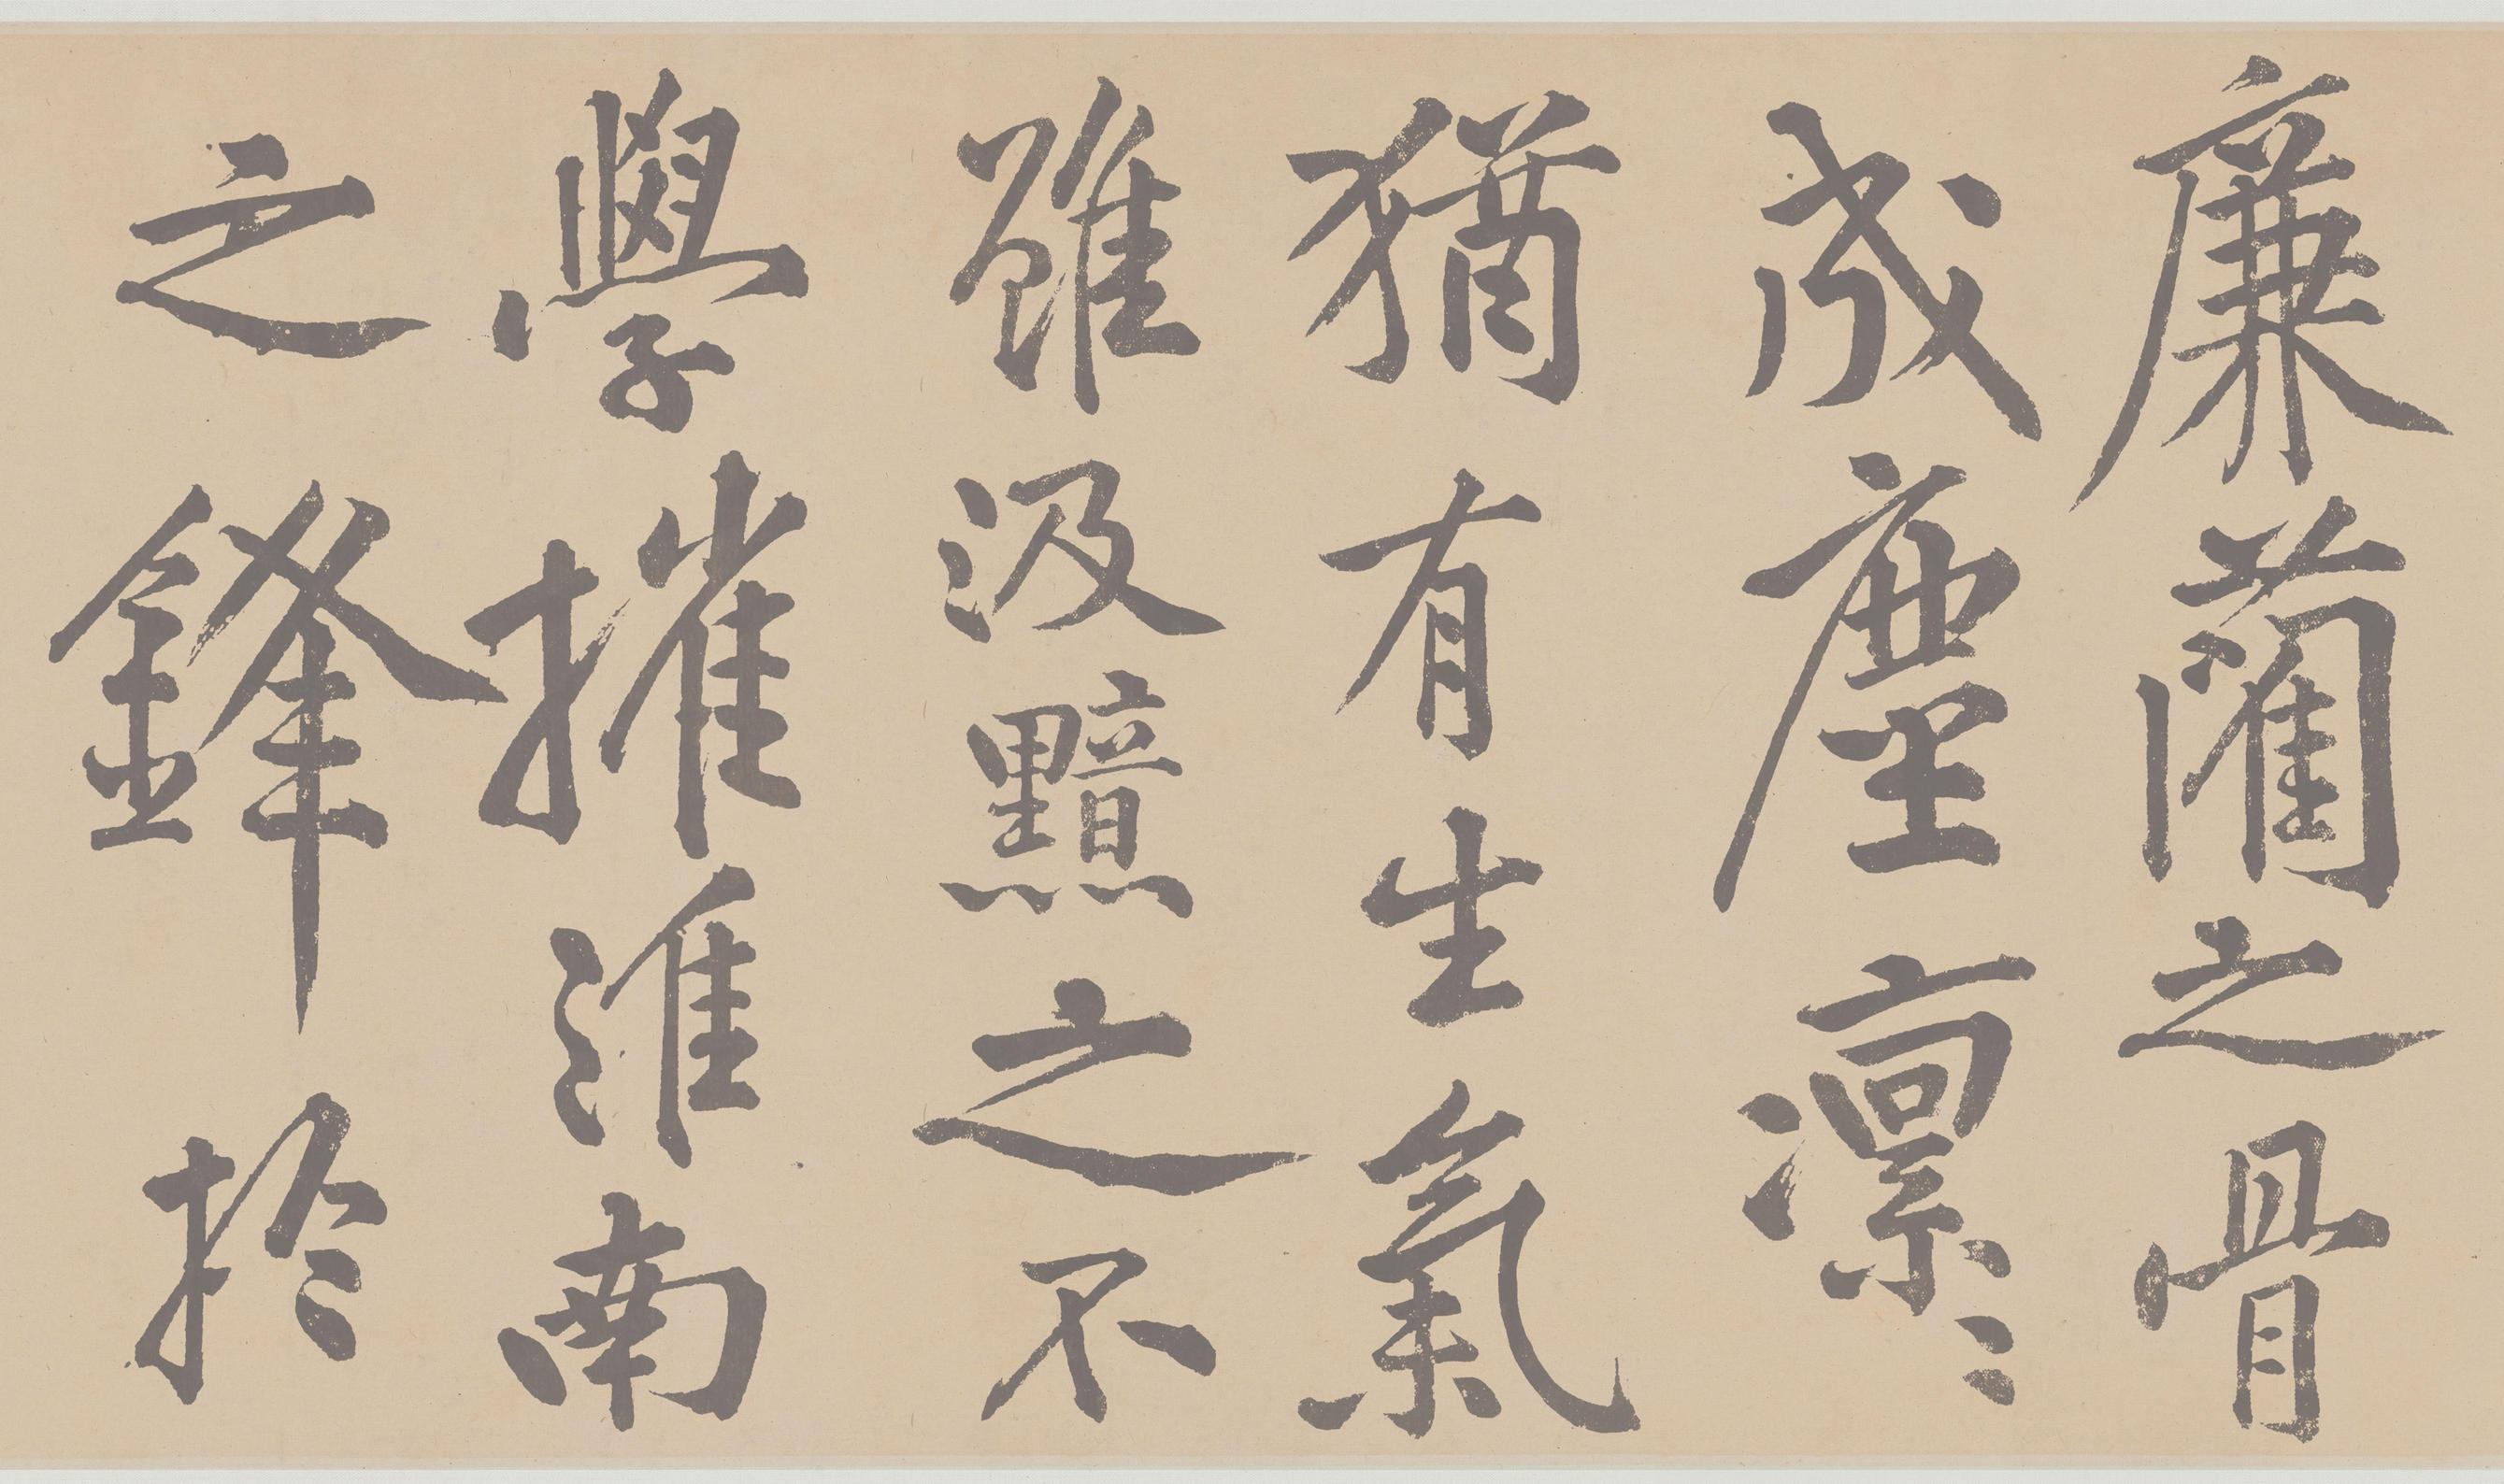 廉藺之骨
成塵凛〻
猶有生氣
雖汲黯之不
學摧淮南
之鋒於